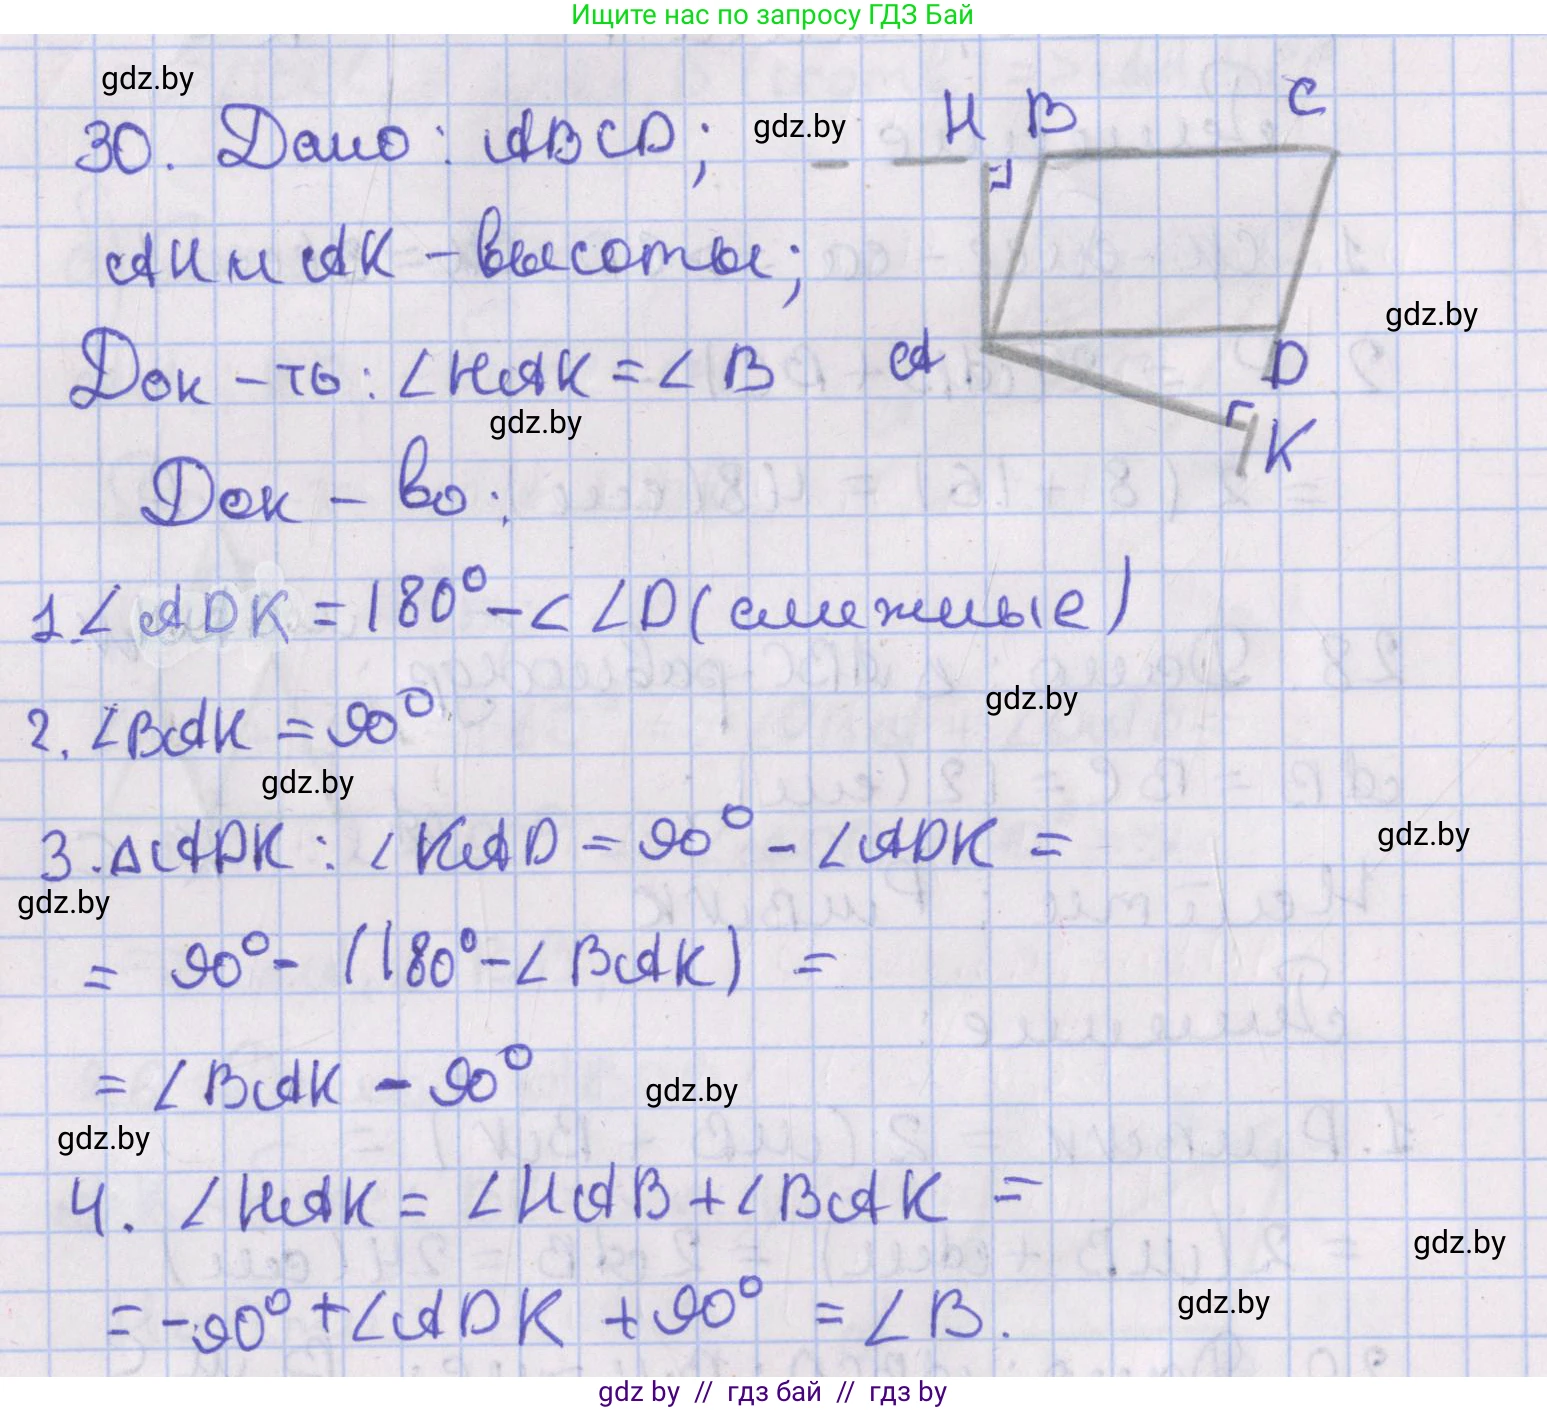 Ищите нас по запросу ГДЗ Бай
gdz.by
30. Дано: ABCD;
gdz.by
H B C
AH и AK – высоты;
gdz.by
Док-ть: ∠HAK = ∠B
A D
gdz.by
K
Док-во:
1. ∠ADK = 180° - ∠ ∠D (смежные)
gdz.by
2. ∠BAK = 90°
gdz.by
3. △ADK: ∠KAD = 90° - ∠ADK =
gdz.by
gdz.by
= 90° - (180° - ∠BAK) =
= ∠BAK - 90°
gdz.by
gdz.by
4. ∠HAK = ∠HAB + ∠BAK =
gdz.by
= -90° + ∠ADK + 90° = ∠B.
gdz.by
gdz by // гдз бай // гдз by